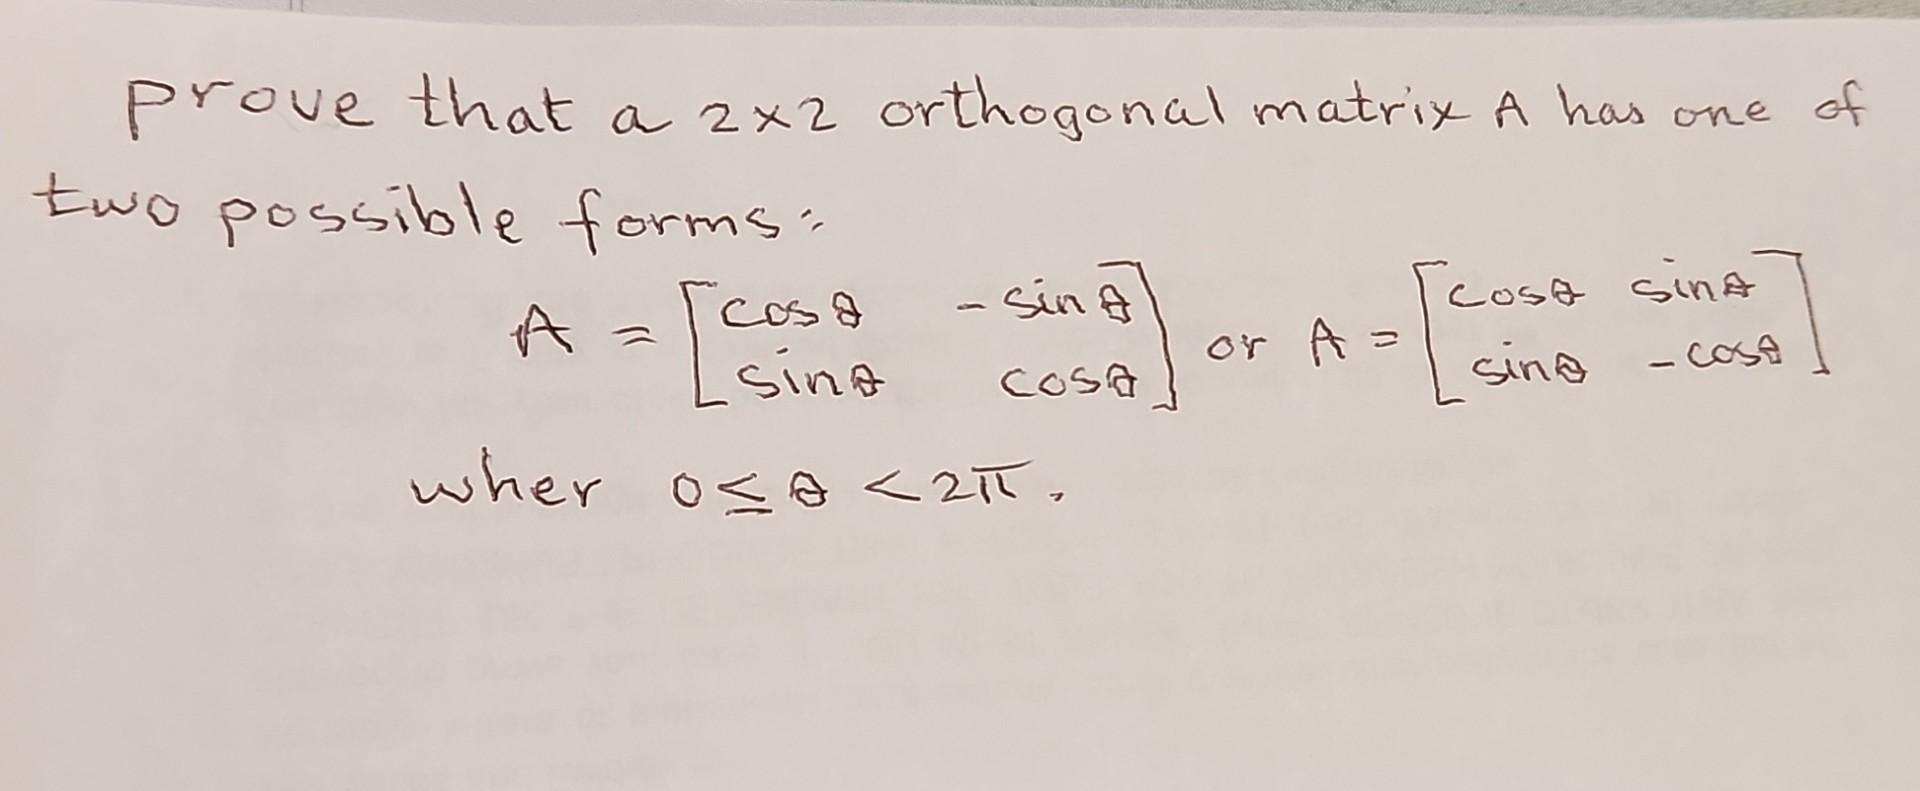 prove that a 2×2 orthogonal matrix A has one of
two possible forms:
A = [cosθ -sinθ
sinθ cosθ] or A = [cosθ sinθ
sinθ -cosθ]
wher 0 ≤ θ < 2π.